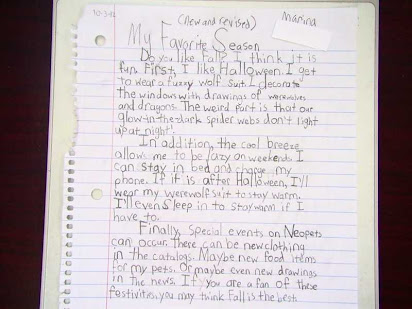 10-3-12
(New and revised)
Marina
My Favorite Season
Do you like Fall? I think it is
fun. First, I like Halloween. I get
to wear a fuzzy wolf suit. I decorate
the windows with drawings of werewolves
and dragons. The weird part is that our
glow-in-the-dark spider webs don't light
up at night!
In addition, the cool breeze
allows me to be lazy on weekends. I
can stay in bed and charge my
phone. If it is after Halloween, I'll
wear my werewolf suit to stay warm.
I'll even sleep in to stay warm if I
have to.
Finally, special events on Neopets
can occur. There can be new clothing
in the catalogs. Maybe new food items
for my pets. Or maybe even new drawings
in the news. If you are a fan of these
festivities, you may think Fall is the best.